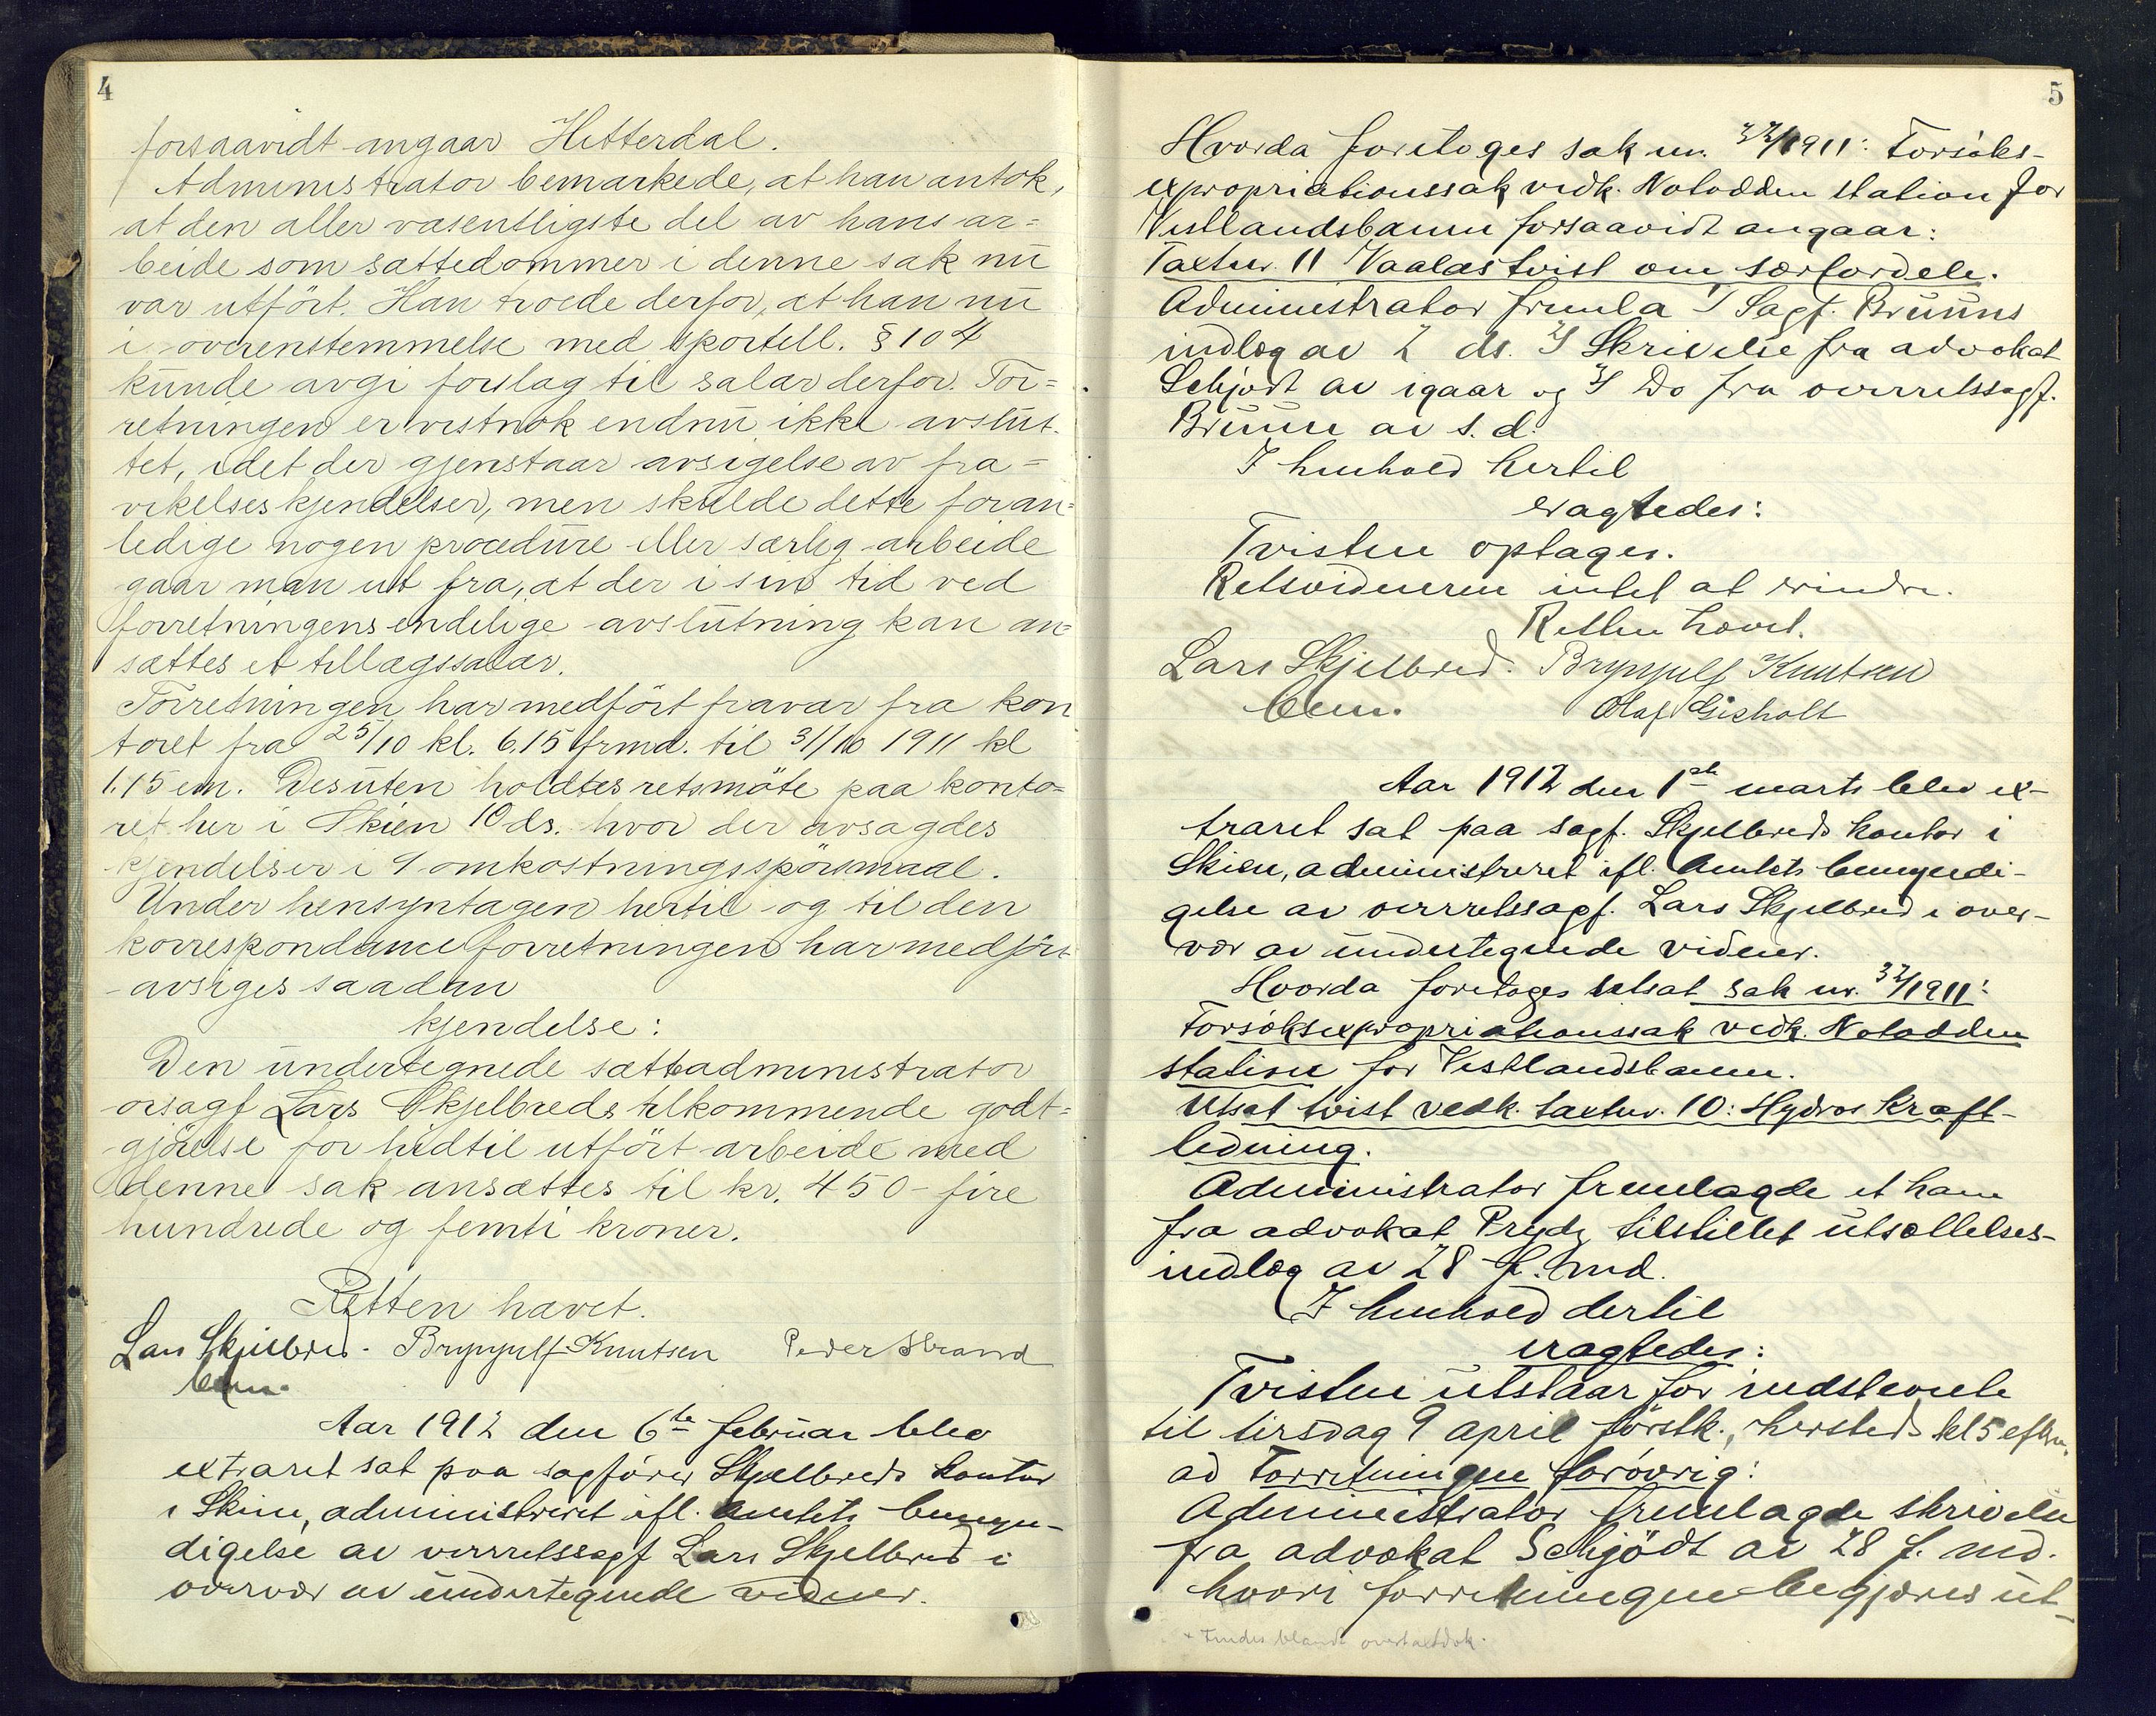 4
forsaavidt angaar Hitterdal.
Administrator bemærkede, at han antok,
at den aller væsentligste del av hans ar=
beide som sættedommer i denne sak nu
var utført. Han troede derfor, at han nu
i overenstemmelse med sportell. § 104
kunde avgi forslag til salær derfor. For=
retningen er vistnok endnu ikke avslut=
tet, idet der gjenstaar avsigelse av fra=
vikelseskjendelser, men skulde dette foran=
ledige nogen procedure eller særlig arbeide
gaar man ut fra, at der i sin tid ved
forretningens endelige avslutning kan an=
sættes et tillægssalær.
Forretningen har medført fravær fra kon
toret fra 25/10 kl. 6.15 frmd. til 31/10 1911 kl
1.15 em. Desuten holdtes retsmöte paa konto=
ret her i Skien 10 ds. hvor der avsagdes
kjendelser i 9 omkostningsspörsmaal.
Under hensyntagen hertil og til den
korrespondance forretningen har medført
avsiges saadan
kjendelse:
Den undertegnede sætteadministrator
orsagf Lars Skjelbreds tilkommende godt=
gjörelse for hidtil utfört arbeide med
denne sak ansættes til kr. 450 – fire
hundrede og femti kroner.
Retten hævet.
Lars Skjelbred. Brynjulf Knutsen Peder Strand
bem.
Aar 1912 den 6te februar blev
extraret sat paa sagförer Skjelbreds kontor
i Skien, administreret ifl. Amtets bemyn-
digelse av overretssagf Lars Skjelbred i
overvær av undertegnede vidner.
5
Hvorda foretoges sak nr. 32/1911: Forsöks-
expropriationssak vedk. Notodden station for
Vestlandsbanen forsaavidt angaar:
Taxtnr. 11 Vaalas tvist om særfordele.
Administrator fremla 1/ Sagf. Bruuns
indlæg av 2 ds. 2/ Skrivelse fra advokat
Schjødt av igaar og 3/ Do fra overretssagf.
Bruun av s. d.
I henhold hertil
eragtedes:
Tvisten optages.
Retsvidnerne intet at erindre.
Retten hævet.
Lars Skjelbred. Brynjulf Knutsen
bem. Olaf Gisholt
Aar 1912 den 1ste marts blev ex-
traret sat paa sagf. Skjelbreds kontor i
Skien, administreret ifl. Amtets bemyndi-
gelse av overretssagf. Lars Skjelbred i over-
vær av undertegnede vidner.
Hvorda foretoges utsat sak nr. 32/1911:
Forsöksexpropriationssak vedk. Notodden
station for Vestlandsbanen.
Utsat tvist vedk. taxtnr. 10: Hydros kraft-
ledning.
Administrator fremlagde et ham
fra advokat Prydz tilstillet utsættelses-
indlæg av 28 f. md.
I henhold dertil
eragtedes:
Tvisten utstaar for indstevnte
til tirsdag 9 april förstk., hersteds kl 5 eftm.
ad Forretningen forövrig:
Administrator fremlagde skrivelse
fra advokat Schjödt av 28 f. md.
hvori forretningen begjæres ut-
+ Findes blandt overtaxtdok.